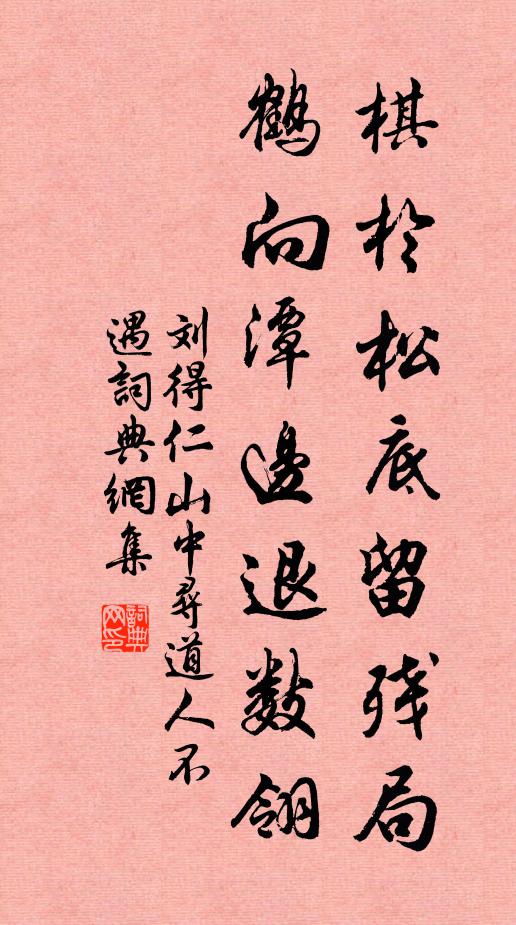 棋於松底留残局
鹤向潭邊退数翎
刘得仁山中尋道人不
遇詞典網集
詞典网印